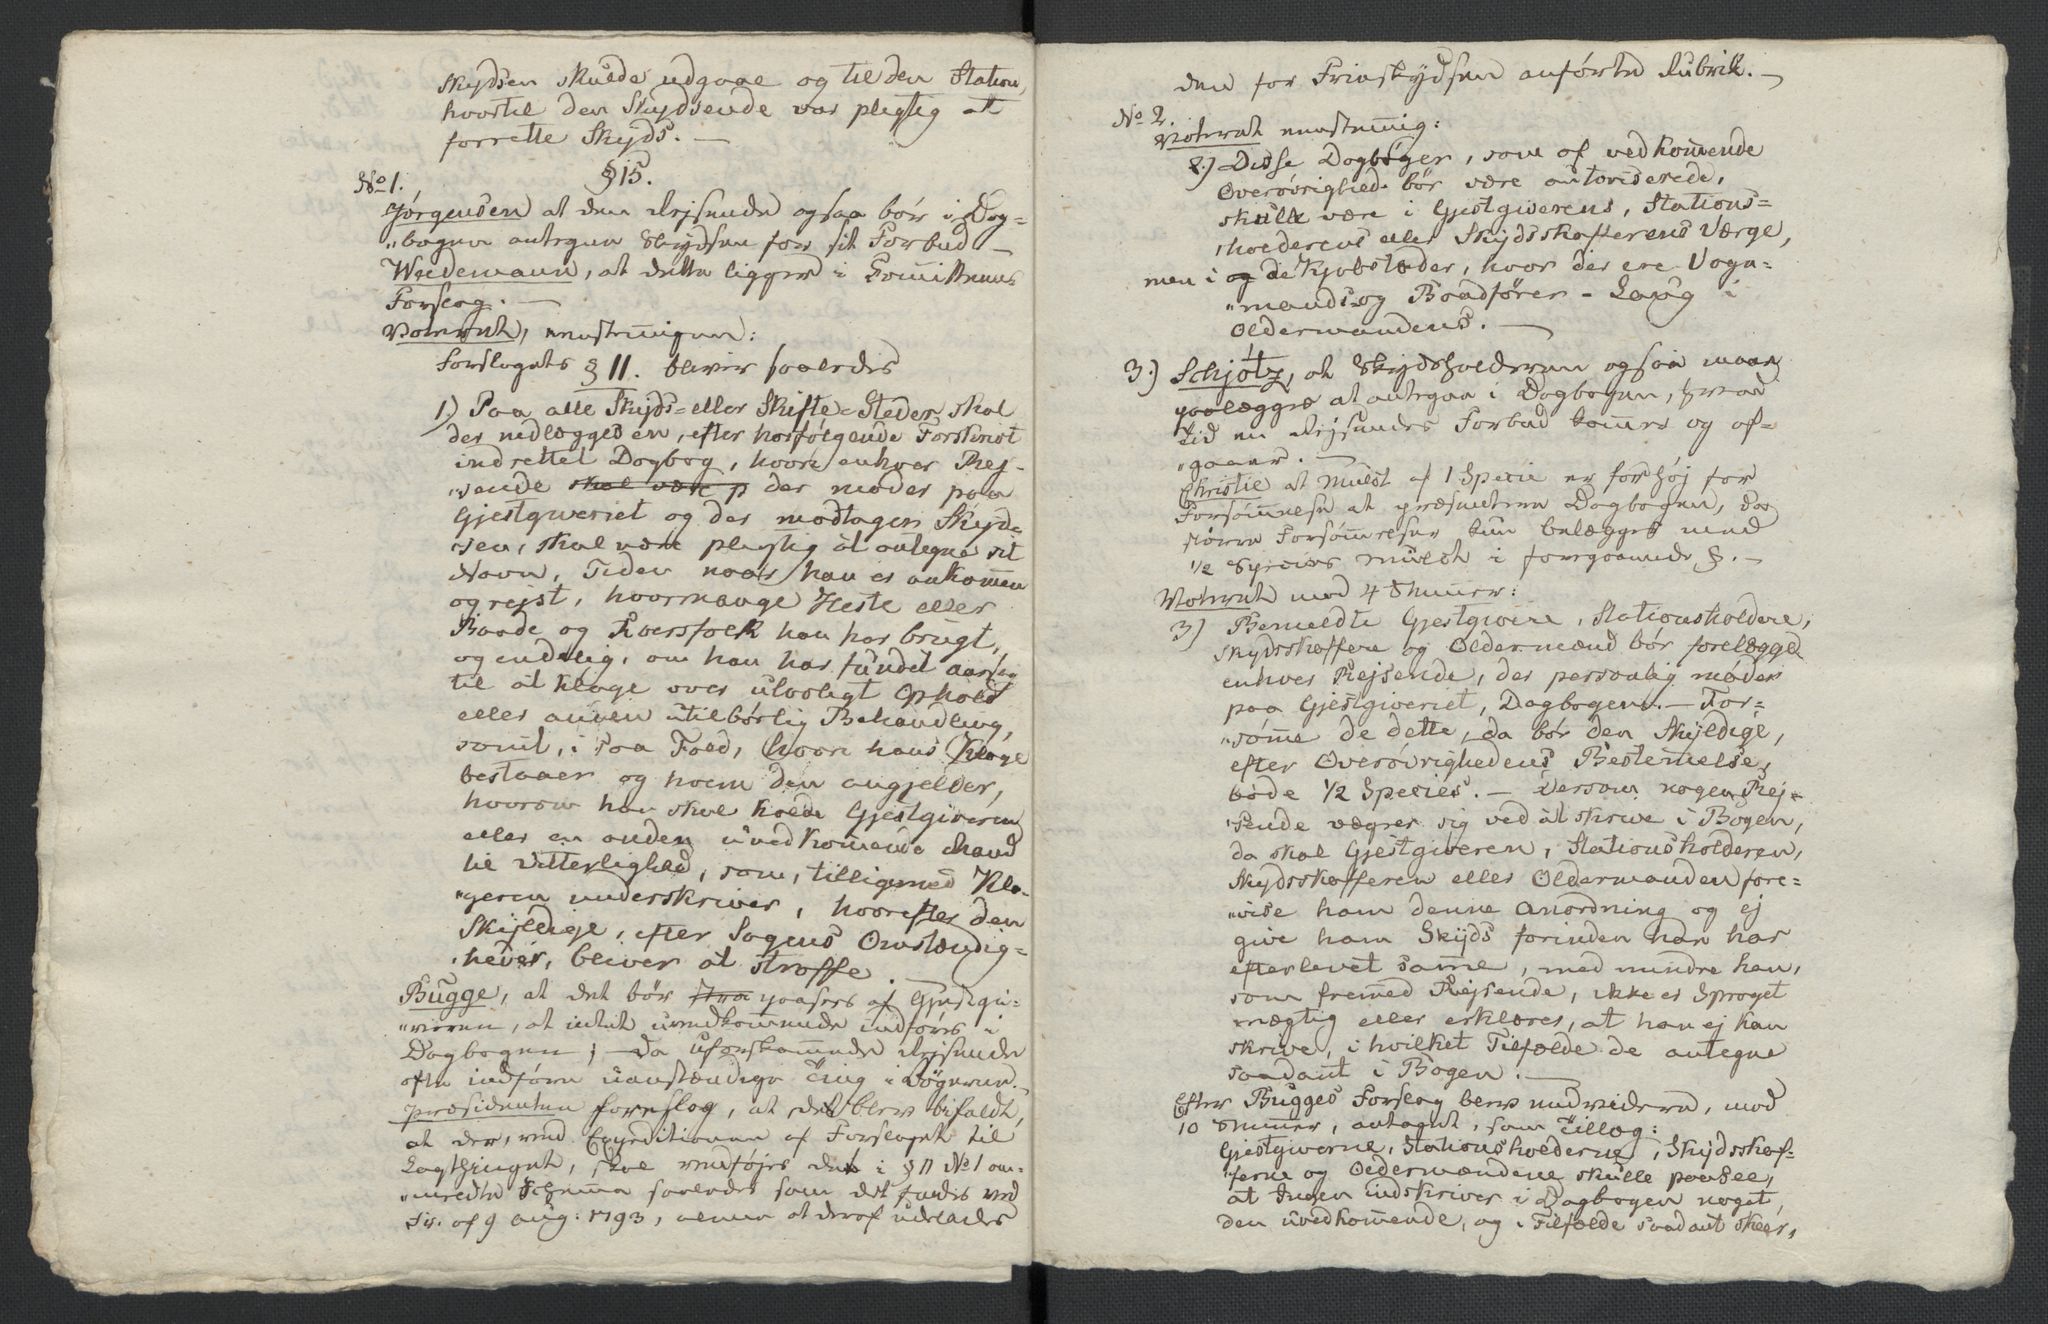 Skydsen skulde udgaae og til den Station,
hvortil den Skydsende var pligtig at
forrette Skyds. —
§ 15.
No 1.
Jörgensen at den Rejsende ogsaa bör i Dag-
"bogen antegne Skydsen for sit Forbud —
Wedemann, at dette ligger i Committeens
Forslag. —
Voterendt, eenstemigen:
Forslagets § 11. bliver saaledes
1.) Paa alle Skyds- eller Skifte-Steder skal
der nedlægges en, efter hosfølgende Forskrivt
indrettet Dagbog, hvori enhver Rej-
"sende skal være p der møder paa
Gjestgiveriet og der modtager Skyd-
sen, skal være pligtig at antegne sit
Navn, Tiden naar han er ankommen
og rejst, hvormange Heste eller
Baade og Roersfolk han har brugt,
og endelig, om han har fundet aarsag
til at klage over ulovligt Ophold
eller anden utilbörlig Behandling,
samt, i saa Fald, hvori hans Klage
bestaaer og hvem den angjelder,
hvorom han skal kalde Gjestgiveren
eller en anden uvedkommende Mand
til Vitterlighed, som, tilligemed Kla-
"geren underskriver, hvorefter den
Skyldige, efter Sagens Omstændig-
"heder, bliver at straffe. —
Bugge, at det bör paasees af Gjestgi-
"veren, at intet uvedkommende indføres i
Dagbogen; — da uforskammede Rejsende
ofte indføre uanstændige Ting i Bögerne. —
Præsidenten foreslog, at det blev bifaldt,
at der, ved Expeditionen af Forslaget til
Lagthinget, skal vedføjes det i § 11 No 1 om-
"meldte Schema saaledes som det findes ved
Fr. af 9 Aug: 1793, allene at deraf udelades
den for Friskydsen anførte Rubrik. —
No 2.
Voterendt eenstemig:
2.) Disse Dagbøger, som af vedkommende
Overövrighed bör være autoriserede,
skulle være i Gjestgiverens, Stations-
"holderens eller Skydsskafferens Værge,
men i og de Kjøbstæder, hvor der ere Vogn-
"mands- og Baadfører-Laug i
Oldermandens. —
3.) Schjötz, at Skydsholderen ogsaa maae
paalægges at antegne i Dagbogen, hvad
Tid en Rejsendes Forbud komer og af-
"gaaer. —
Christie at Mulct af 1 Specie er for høj for
Forsömmelse at præsentere Dagbogen, da
större Forsömmelser kun belægges med
1/2 Species Mulct i foregaaende §. —
Voterendt med 4 Stemmer:
3) Bemeldte Gjestgivere, Stationsholdere,
Skydsskaffere og Oldermænd bör forelægge
enhver Rejsende, der personlig møder
paa Gjestgiveriet, Dagbogen. — For-
"sømme de dette, da bör den Skyldige,
efter Overövrighedens Bestemmelse,
böde 1/2 Species. — Dersom nogen Rej-
"sende vægrer sig ved at skrive i Bogen,
da skal Gjestgiveren, Stationsholderen,
Skydsskafferen eller Oldermanden fore-
"vise ham denne Anordning og ej
give ham Skyds forinden han har
efterlevet samme, med mindre han,
som fremmed Rejsende, ikke er Sproget
mægtig eller erklærer, at han ej kan
skrive, i hvilket Tilfælde de antegne
saadant i Bogen. —
Efter Bugges Forslag blev endvidere, mod
10 Stemmer, antaget, som Tillæg:
Gjestgiverne, Stationsholderne, Skydsskaf-
"ferne og Oldermændene skulle paasee,
at Ingen indskriver i Dagbogen noget,
den uvedkommende, og i Tilfælde saadant skeer,